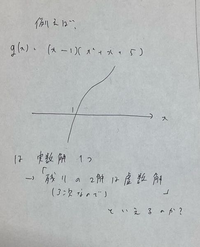 例えば、
g(x) = (x-1)(x²+x+5)
1
x
は 実数解 1つ
→「残りの2解は虚数解
(3次なので)」
といえるのか?